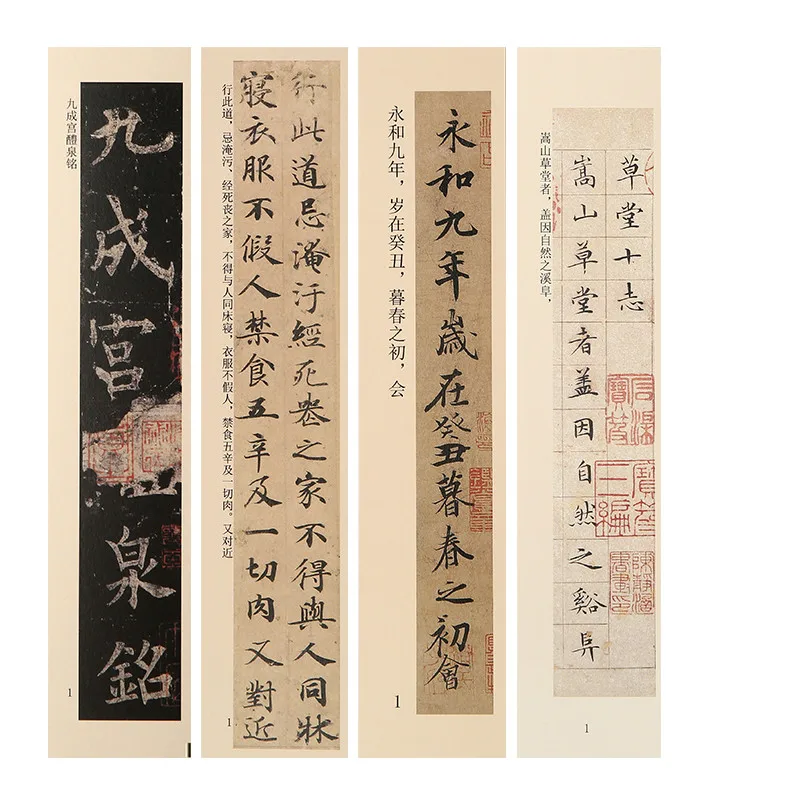 九成宫醴泉铭
九成宮泉銘
1
行此道，忌淹污、经死丧之家，不得与人同床寝，衣服不假人，禁食五辛及一切肉。又对近
行此道忌淹汙經死喪之家不得與人同牀
寢衣服不假人禁食五辛及一切肉又對近
1
永和九年，岁在癸丑，暮春之初，会
永和九年歲在癸丑暮春之初會
1
嵩山草堂者，盖因自然之溪阜，
草堂十志
嵩山草堂者盖因自然之谿阜
1